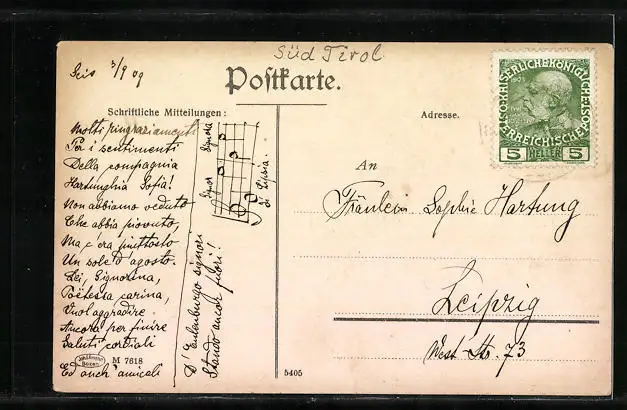 Süd Tirol
Seis 3/9 09
Postkarte.
Schriftliche Mitteilungen:
Adresse.
KAISERLICHEKÖNIGLICHE
ÖSTERREICHISCHE
5 HELLER 5
Molti ringraziamenti
Per i sentimenti
Della compagnia
Hartunghia Sofia!
Non abbiamo veduto
Che abbia piovuto,
Ma c'era piuttosto
Un sole d'agosto.
Lei, Signorina,
Poëtessa carina,
Vuol aggradire
Ancora per finire
Saluti cordiali
Ed anch' amicali
D' Eulenburgo signori
Stando ancor fuori!
Signor Signora
di Lipsia.
An
Fräulein Sophie Hartung
Leipzig
West-Str. 73
Bozen
M 7618
5405